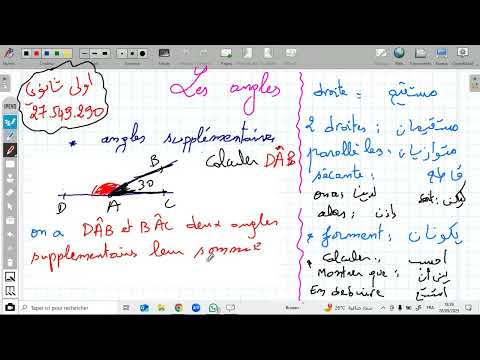 أولى ثانوي
27.549.290
Les angles
* angles supplémentaires
Calculer DÂB
B
30
D
A
C
on a DÂB et BÂC deux angles
supplementairs leur somme
droite : مستقيم
2 droites : مستقيمان
parallèles : متوازيان
sécante : قاطع
on a : لدينا
Soit : ليكن
alors : إذن
* forment : يكونان
* Calculer : احسب
Montrer que : بين أن
En déduire استنتج
Taper ici pour rechercher
26°C
FRA
18:39